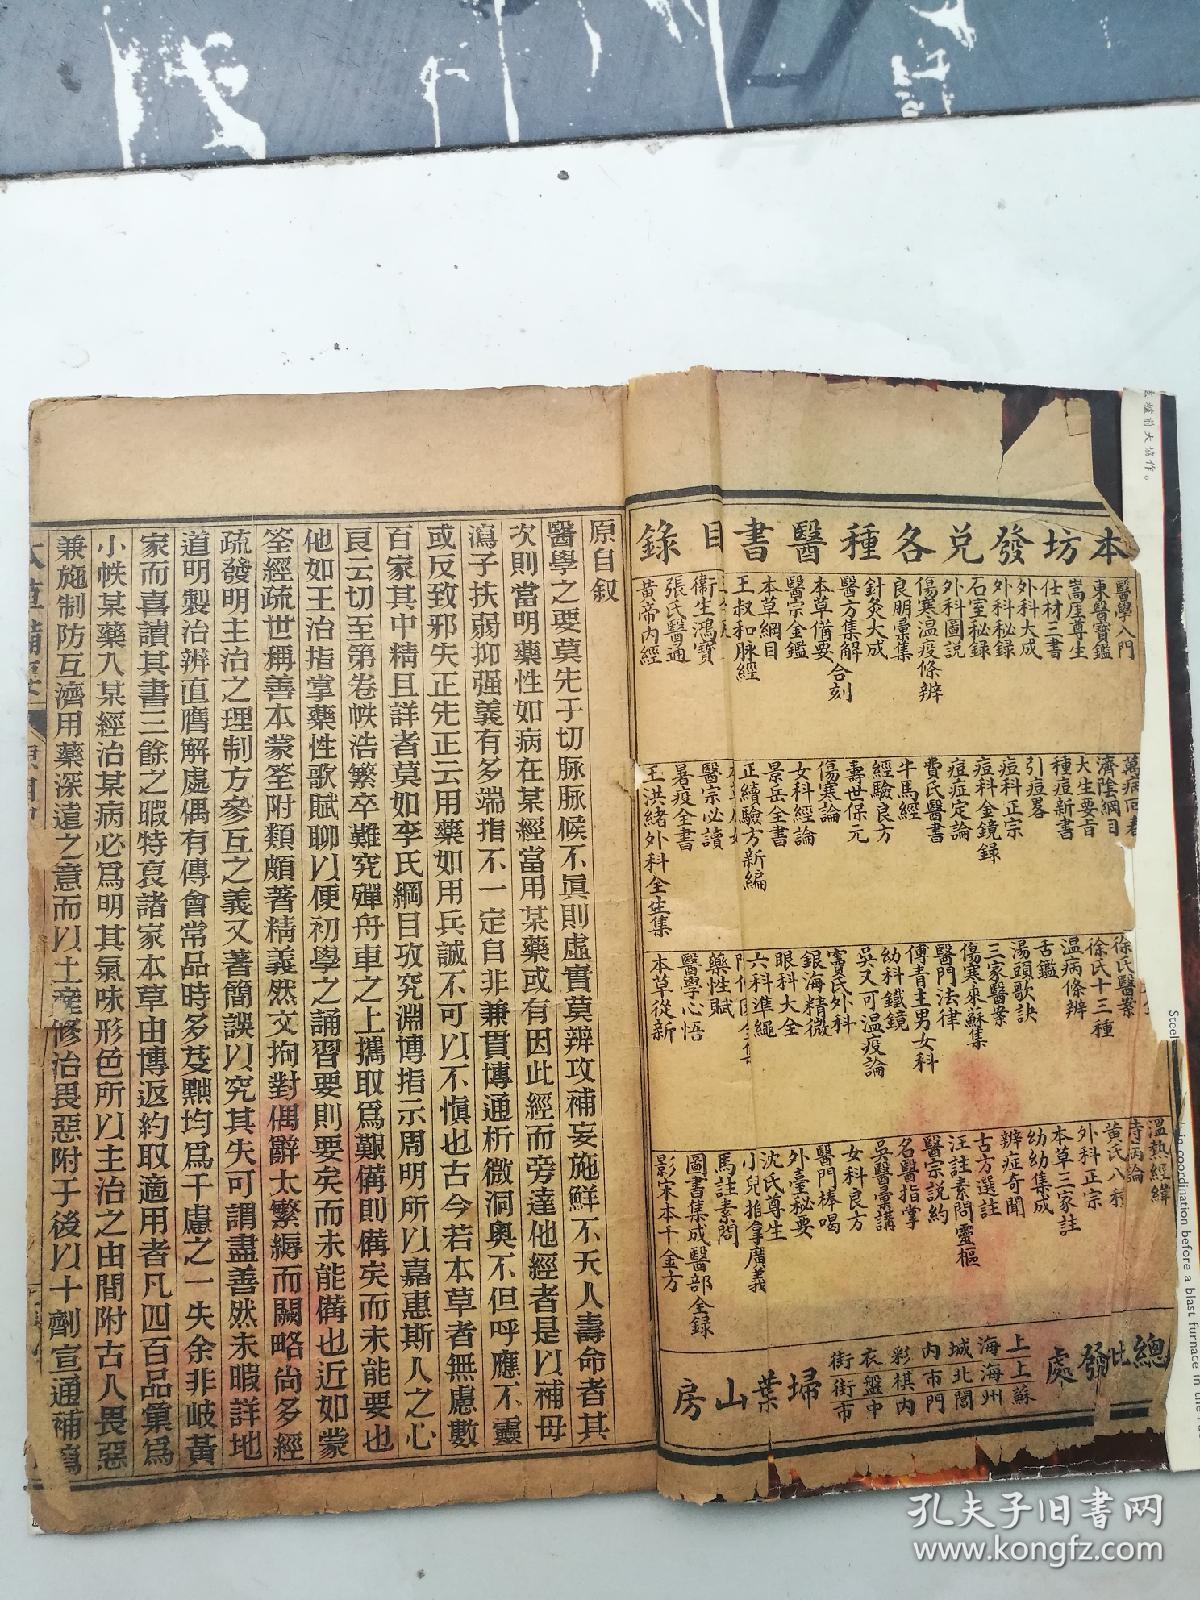 本坊發兌各種醫書目錄
醫學入門
東醫寶鑑
嵩厓尊生
仕材三書
外科大成
外科秘錄
石室秘錄
外科圖說
傷寒溫疫條辨
良朋彙集
針灸大成
醫方集解
本草備要 合刻
醫宗金鑑
本草綱目
王叔和脉經
衛生鴻寶
張氏醫通
黃帝內經
萬病回春
濟陰綱目
大生要旨
種痘新書
引痘畧
痘科正宗
痘科金鏡錄
痘症定論
費氏醫書
牛馬經
經驗良方
壽世保元
傷寒論
女科經論
景岳全書
正續驗方新編
醫宗必讀
暑疫全書
王洪緒外科全生集
徐氏醫案
徐氏十三種
溫病條辨
舌鑑
湯頭歌訣
三家醫案
傷寒來蘇集
醫門法律
傅青主男女科
幼科鐵鏡
吳又可溫疫論
竇氏外科
銀海精微
眼科大全
六科準繩
藥性賦
醫學心悟
本草從新
溫熱經緯
時病論
黃氏八種
外科正宗
本草三家註
幼幼集成
辨症奇聞
古方選註
汪註素問靈樞
醫宗說約
名醫指掌
吳醫彙講
女科良方
醫門棒喝
外臺秘要
沈氏尊生
小兒推拿廣義
馬註素問
圖書集成醫部全錄
影宋本千金方
總批發處
上海城內彩衣街
上海北市棋盤街
蘇州閶門內中市
掃葉山房
原自叙
醫學之要莫先于切脉脉候不眞則虛實莫辨攻補妄施鮮不夭人壽命者其
次則當明藥性如病在某經當用某藥或有因此經而旁達他經者是以補母
瀉子扶弱抑强義有多端指不一定自非兼貫博通析微洞奧不但呼應不靈
或反致邪失正先正云用藥如用兵誠不可以不愼也古今若本草者無慮數
百家其中精且詳者莫如李氏綱目攷究淵博指示周明所以嘉惠斯人之心
良云切至第卷帙浩繁卒難究殫舟車之上攜取爲艱備則備矣而未能要也
他如王治指掌藥性歌賦聊以便初學之誦習要則要矣而未能備也近如蒙
筌經疏世稱善本蒙筌附類頗著精義然文拘對偶辭太繁縟而闕略尚多經
疏發明主治之理制方參互之義又著簡誤以究其失可謂盡善然未暇詳地
道明製治辨直膺解處偶有傳會常品時多芟黜均爲千慮之一失余非岐黃
家而喜讀其書三餘之暇特裒諸家本草由博返約取適用者凡四百品彙爲
小帙某藥入某經治某病必爲明其氣味形色所以主治之由間附古人畏惡
兼施制防互濟用藥深遠之意而以土產修治畏惡附于後以十劑宣通補瀉
孔夫子旧书网
www.kongfz.com